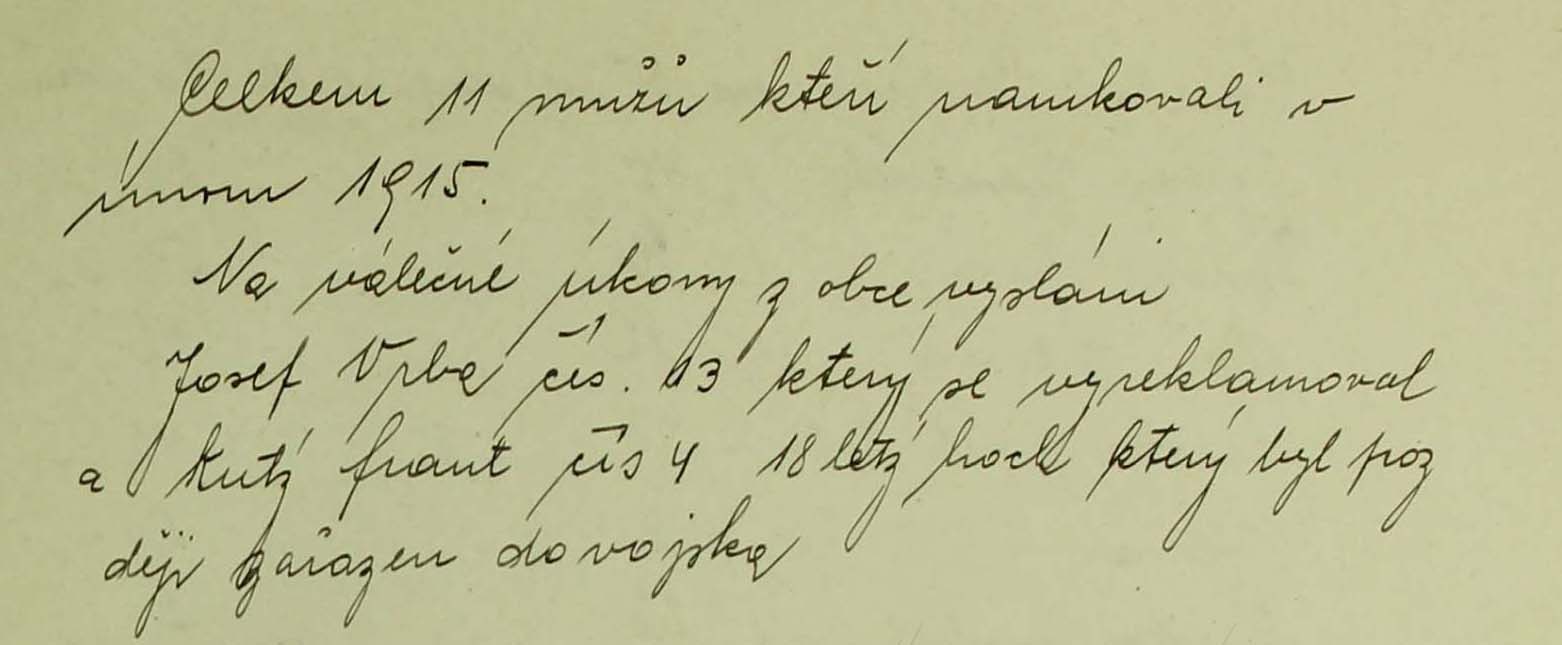 Celkem 11 mužů kteří narukovali v
únoru 1915.
Na válečné úkony z obce vysláni
Josef Vrba čís. 13 který se vyreklamoval
a Kutý Frant čís 4 18 letý hoch který byl poz
ději zařazen do vojska